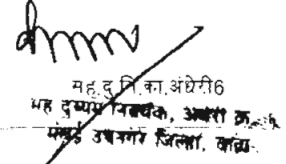 मह.दु.नि.का.अंधेरी6
सह दुय्यम निबंधक, अंधेरी क्र.
मुंबई उपनगर जिल्हा, वांद्रे.